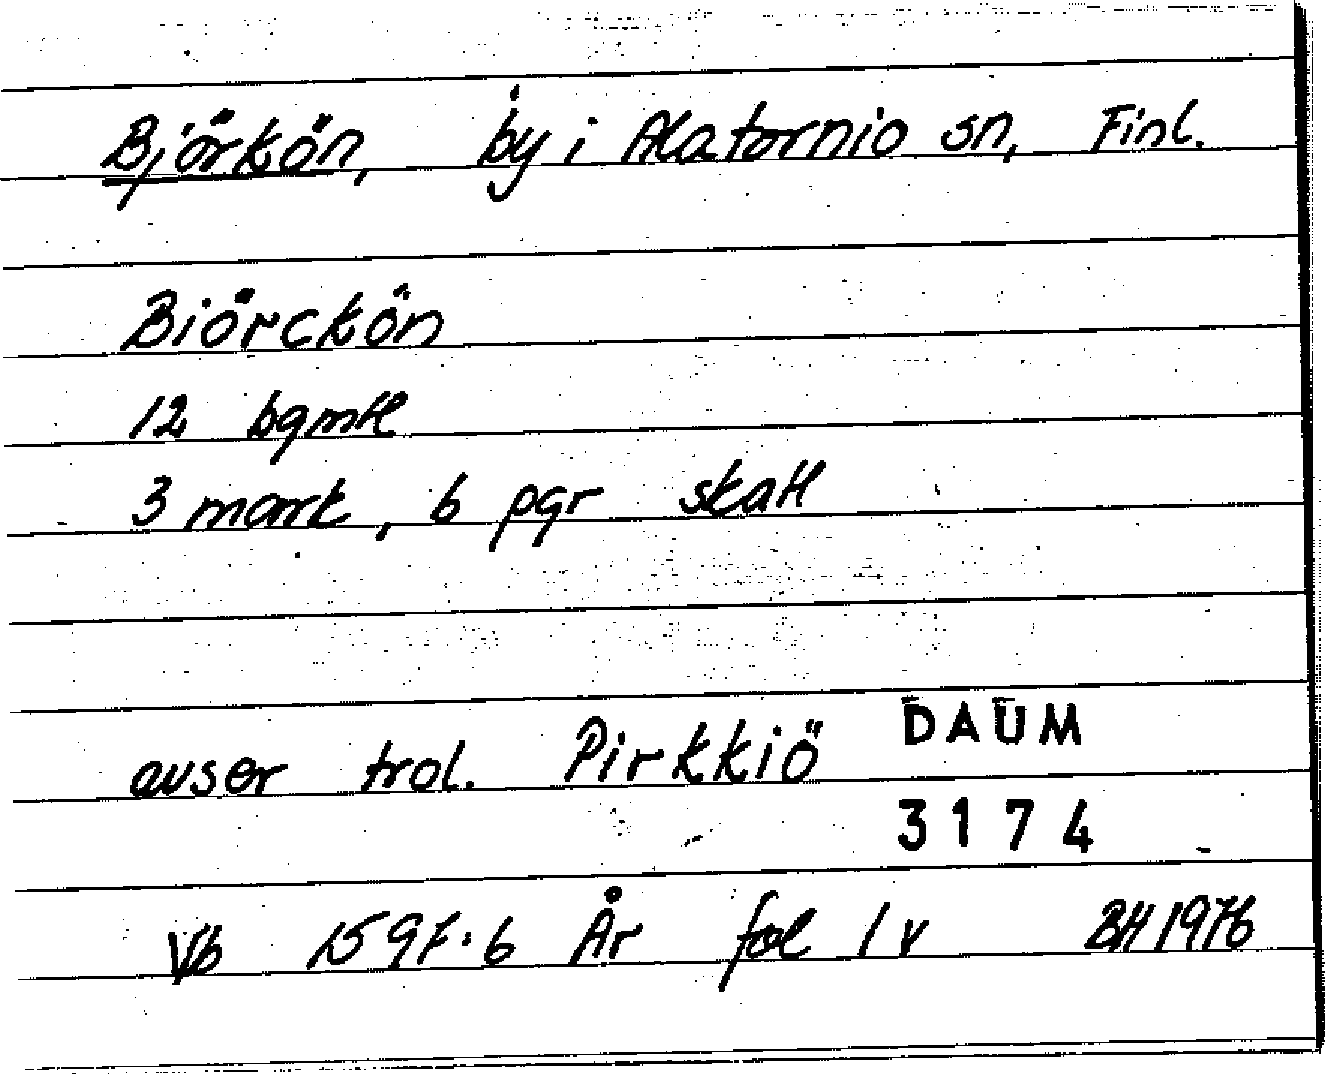 Björkön, by i Alatornio sn, Finl.
Biörckön
12 bgmtl
3 mark, 6 pgr skatt
avser trol. Pirkkiö DAUM
3174
Vb 1597:6 År fol 1 v BH 1976